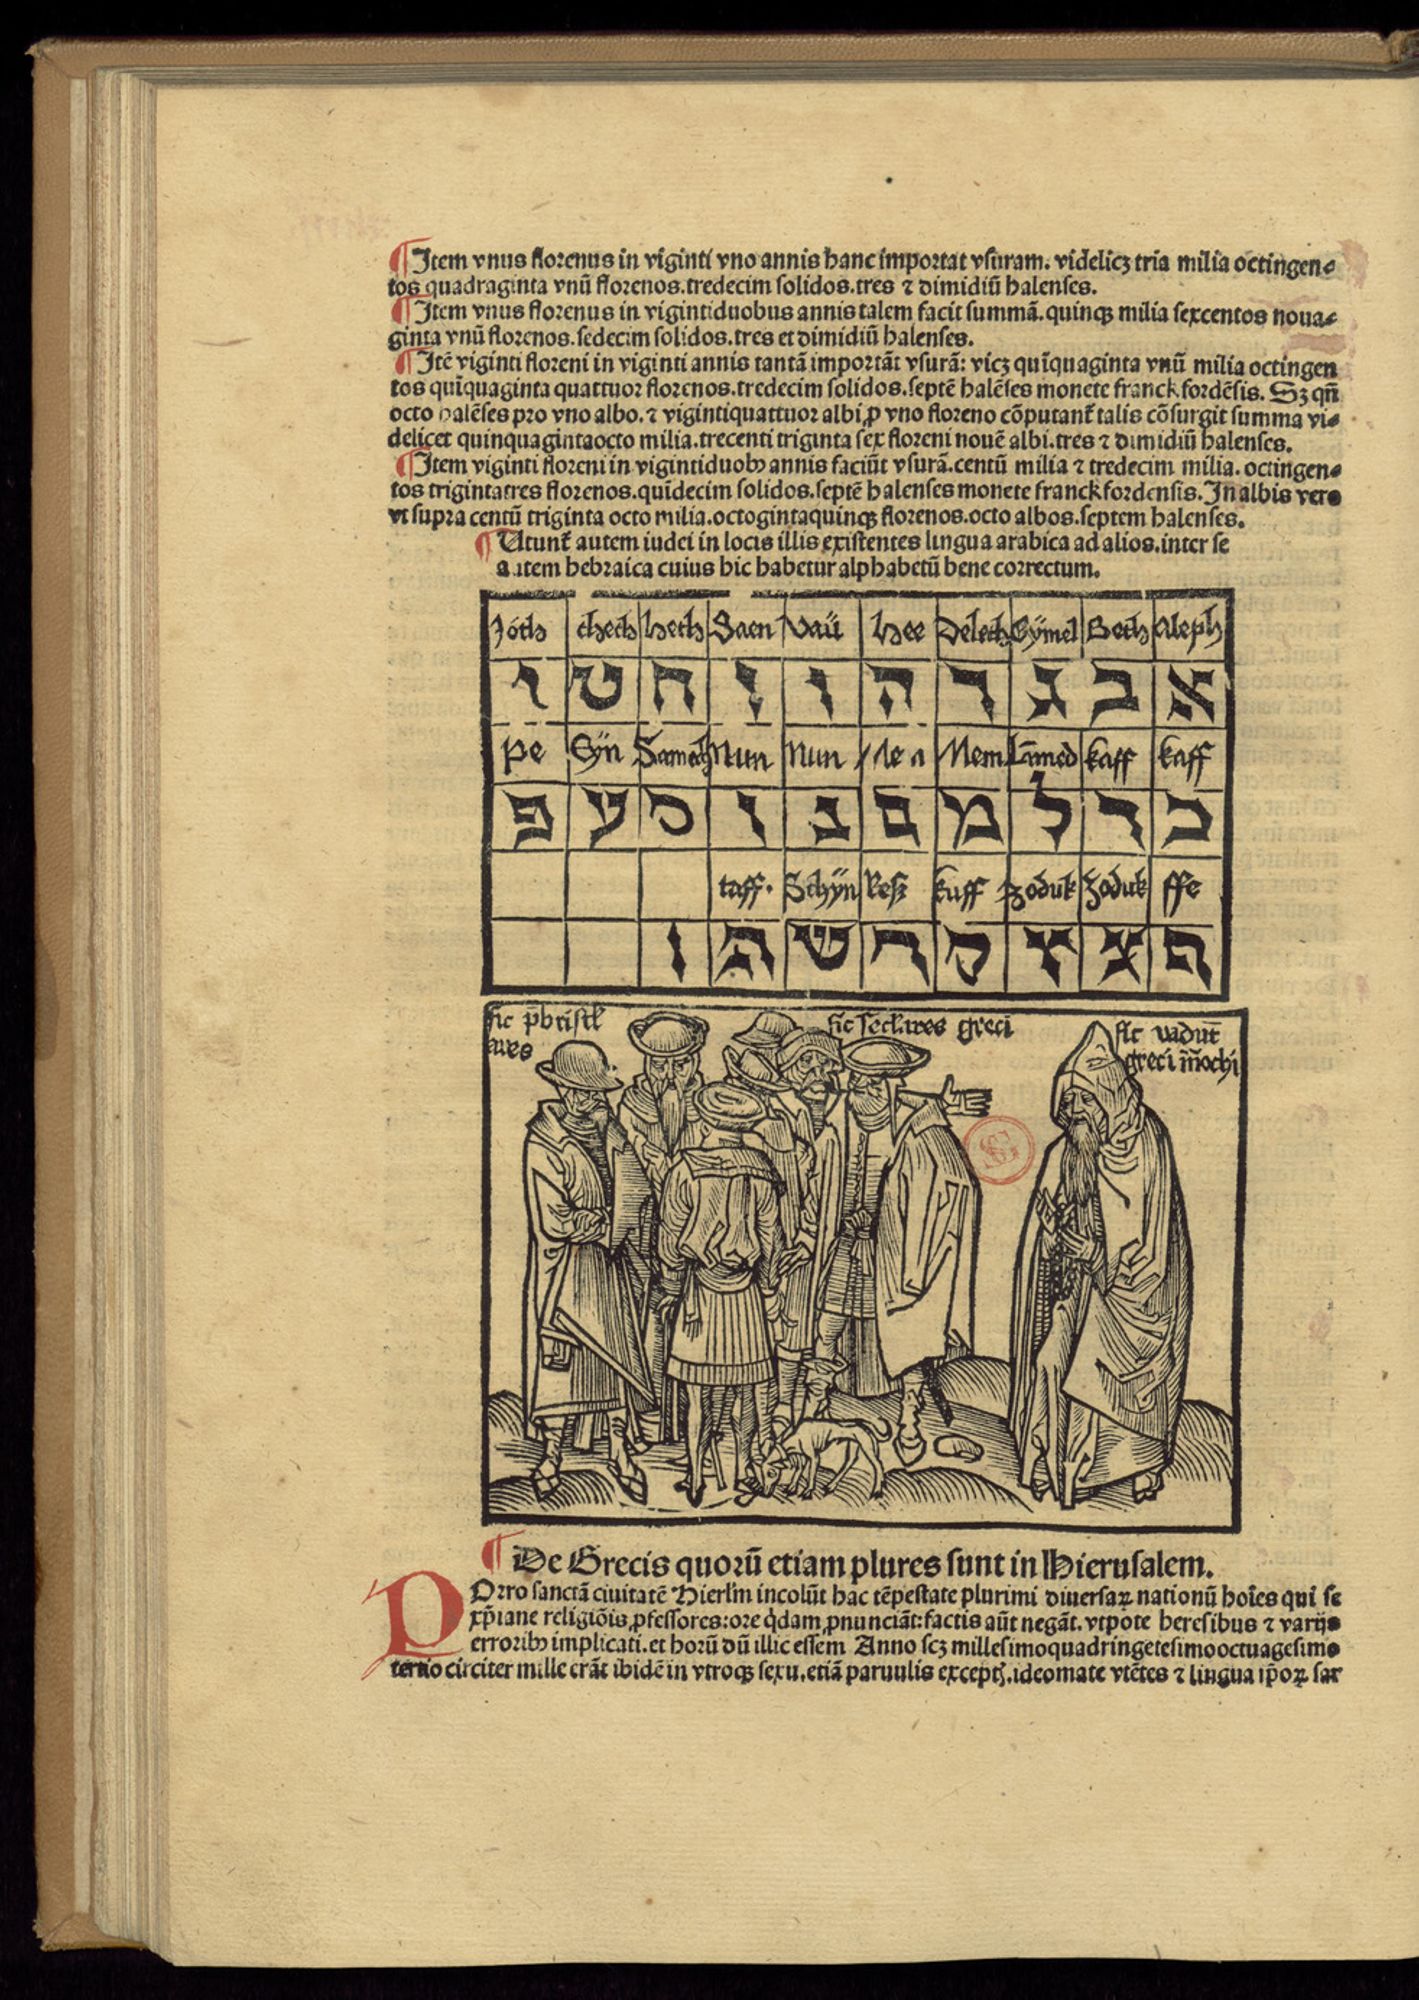 ¶ Item vnus florenus in viginti vno annis hanc importat vsuram. videlicꝫ tria milia octingen⸗
tos quadraginta vnū florenos. tredecim solidos. tres ⁊ dimidiū halenses.
¶ Item vnus florenus in vigintiduobus annis talem facit summā. quinqꝫ milia sexcentos noua⸗
ginta vnū florenos. sedecim solidos. tres et dimidiū halenses.
¶ Itē viginti floreni in viginti annis tantā importāt vsurā: vicꝫ quīquaginta vnū milia octingen
tos quīquaginta quattuor florenos. tredecim solidos. septē halēses monete franckfordēsis. Sꝫ qn̄
octo halēses pro vno albo. ⁊ vigintiquattuor albi ꝓ vno floreno cōputant̄ talis cōsurgit summa vi⸗
delicet quinquagintaocto milia. trecenti triginta sex floreni nouē albi. tres ⁊ dimidiū halenses.
¶ Item viginti floreni in vigintiduobꝰ annis faciūt vsurā. centū milia ⁊ tredecim milia. octingen⸗
tos trigintatres florenos. quīdecim solidos. septē halenses monete franckfordensis. In albis vero
vt supra centū triginta octo milia. octogintaquinqꝫ florenos. octo albos. septem halenses.
¶ Utunt̄ autem iudei in locis illis existentes lingua arabica ad alios. inter se
autem hebraica cuius hic habetur alphabetū bene correctum.
Joth theth heth Saen Vaü hee Deleth Gÿmel Beth Aleph
א ב ג ד ה ו ז ח ט י
pe Gÿn Samech Nun Nun Mem Lamed kaff kaff
כ ך ל מ ם נ ן ס ע פ
taff. Schÿn Resz kuff Zoduk Zoduk ffe
ף צ ץ ק ר ש ת ו
sic p̄bristl
ares
sic seculares greci
sic vadūt
greci m̄ochi
¶ De Grecis quorū etiam plures sunt in Hierusalem.
POrro sanctā ciuitatē Hierl'm incolūt hac tēpestate plurimi diuersaꝝ nationū hoīes qui se
xp̄iane religiōis ꝓfessores: ore q̇dam ꝓnunciāt: factis aūt negāt. vtpote heresibus ⁊ varijs
erroribꝰ implicati. et horū dū illic essem Anno scꝫ millesimoquadringētesimooctuagesimo
tertio circiter mille erāt ibidē in vtroqꝫ sexu. etiā paruulis exceptꝭ. ideomate vtētes ⁊ lingua ip̄oꝝ sar